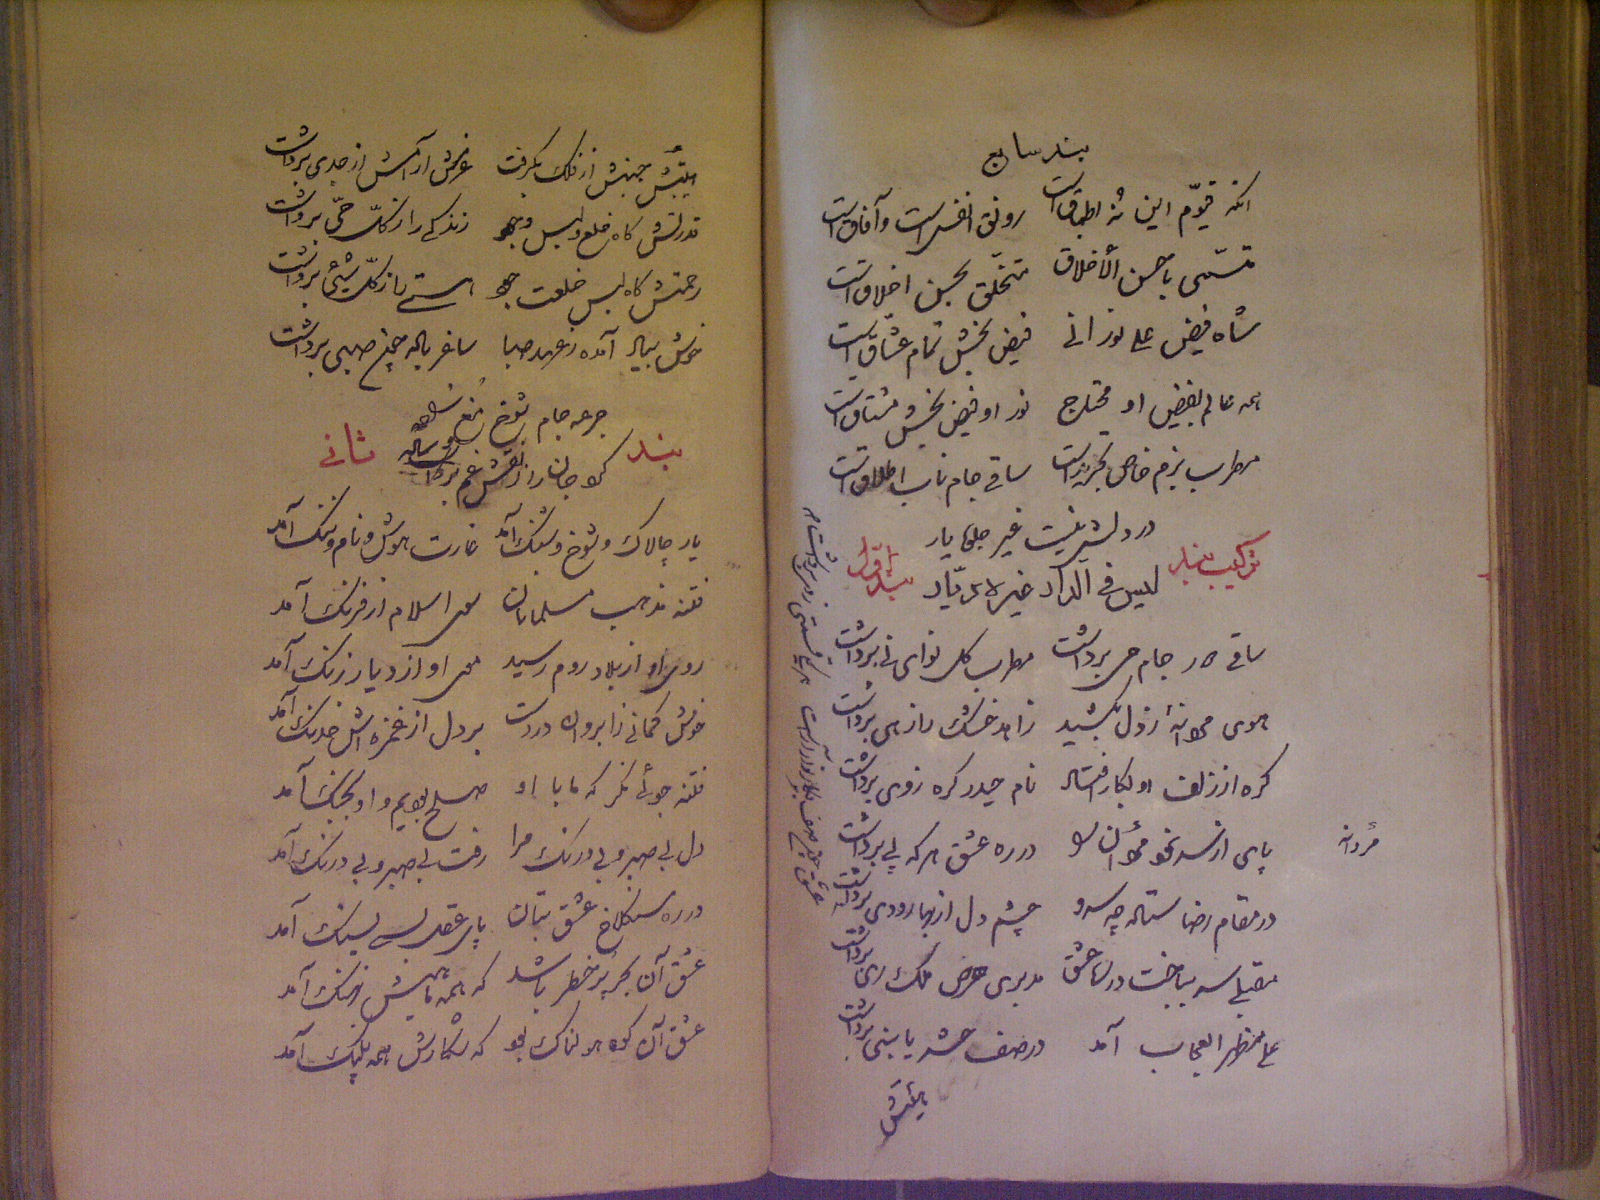 بند سابع
انکه قیوّم این نه اطباق است رونق انفس است و آفاق است
متسمّی باحسن الأخلاق متخلّق بحسن اخلاق است
شاه فیض علی نورانی فیض بخش تمام عشّاق است
همه عالم بفیض او محتاج نور او فیض بخش مشتاق است
مطرب بزم خاص تجرید است ساقی جام ناب اطلاق است
در دلش نیست غیر جلوهٔ یار
ترکیب بند لیس فی الدار غیره دیّار بند اوّل
ساقی در جام می برداشت مطرب کل نوای نی برداشت
هوی مردانهٔ از دل بکشید زاهد خشک را ز هی برداشت
کره از زلف او بکار فتاد نام حیدر کره ز وی برداشت
پای از سر نخواهد در ره عشق هر که پی برداشت
مردانه
در مقام رضا ستاده چه سرو چشم دل از بهار و دی برداشت
مقبلی سر بباخت در ره عشق مدبری حرص ملک ری برداشت
علی مظهر العجایب آمد در صف حشر یا بنی برداشت
هیبتش
هیبتش جنبش از فلک بگرفت غرش آرامش از جدی برداشت
قدرتش کاه خلع و لبس وجود زندکی را ز کلّ حیّ برداشت
رحمتش کاه لبس خلعت جود هستی از کلّ شیئی برداشت
خوش بیاد آمده ز عهد صبا ساغر باده همچو صبی برداشت
جرعه جام شوخ
بند که جان را ز نقش غم برداشت ثانی
یار چالاک و شوخ و شنک آمد غارت هوش و نام و ننک آمد
فتنه مذهب مسلمانان سوی اسلام از فرنک آمد
روی او از بلاد روم رسید موی او از دیار زنک آمد
خوش کمانی ز ابروان در دست بر دل از غمزه اش خدنک آمد
فتنه جوئی نکر که ما با او صلح بودیم و او بجنک آمد
دل بی صبر و بی درنک مرا رفت بی صبر و بی درنک آمد
در ره سنکلاخ عشق بتان پای عقل بسی بسنک آمد
عشق آن بحر پر خطر باشد که همه ماهیش نهنک آمد
عشق آن کوه هولناک بود که شکارش همه پلنک آمد